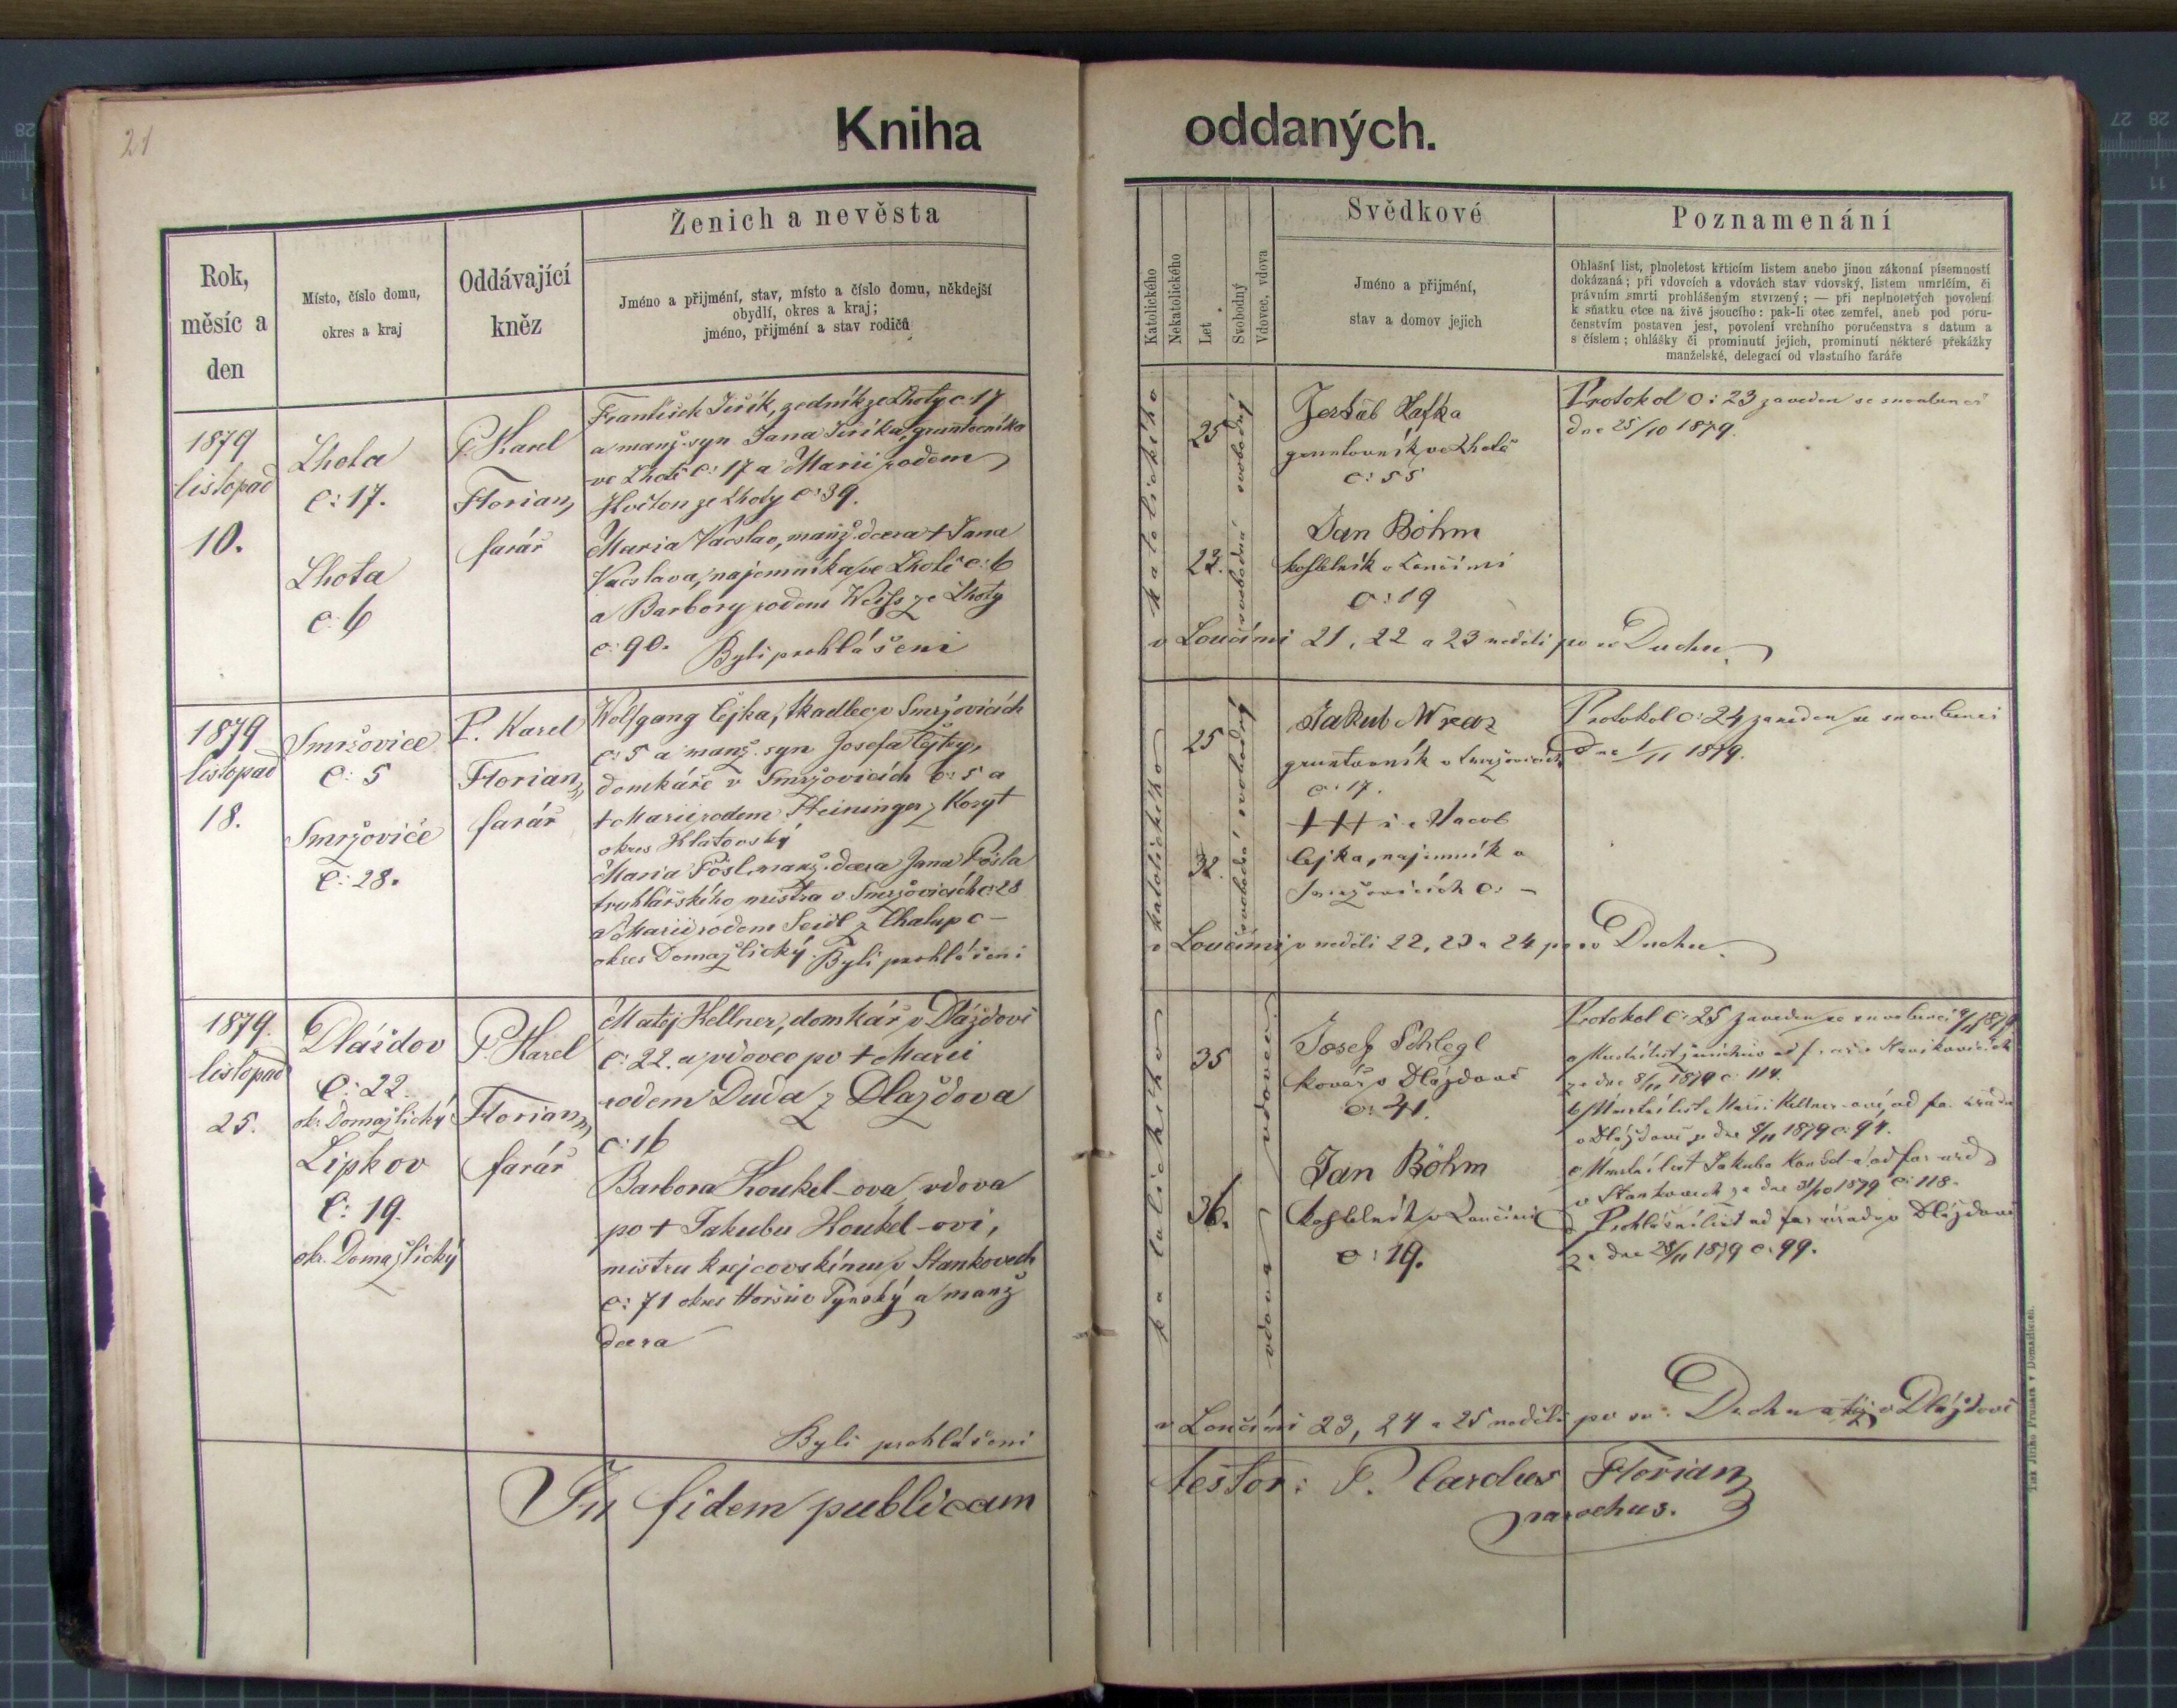 21
Kniha oddaných.
Rok,
měsíc a
den
Místo, číslo domu,
okres a kraj
Oddávající
kněz
Ženich a nevěsta
Jméno a přijmění, stav, místo a číslo domu, někdejší
obydlí, okres a kraj;
jméno, přijmění a stav rodičů
Katolického
Nekatolického
Let
Svobodný
Vdovec, vdova
Svědkové
Jméno a přijmění,
stav a domov jejich
Poznamenání
Ohlašní list, plnoletost křticím listem anebo jinou zákonní písemností
dokázaná; při vdovcích a vdovách stav vdovský, listem umrlčím, či
právním smrti prohlášeným stvrzený; — při neplnoletých povolení
k sňatku otce na živě jsoucího: pak-li otec zemřel, aneb pod poru-
čenstvím postaven jest, povolení vrchního poručenstva s datum a
s číslem; ohlášky či prominutí jejich, prominutí některé překážky
manželské, delegací od vlastního faráře
1879
listopad
10.
Lhota
č: 17.
Lhota
č: 6
P. Karel
Florian,
farář
František Jiřík, zedník ze Lhoty č. 17
a manž. syn Jana Jiříka, gruntovníka
ve Lhotě č: 17 a Marii rodem
ze Lhoty č: 39.
Maria Vácslav, manž. dcera † Jana
Vácslava, najemníka ve Lhotě č: 6
a Barbory rodem Weiss ze Lhoty
č: 90. Byli prohlášeni
katolického
25
svobodný
22.
svobodná
Kafka
gruntovník ve Lhotě
č: 55
Jan Böhm
kostelník v Loučimi
č: 19
Protokol č: 23 zaveden se snoubenci
dne 25/10 1879.
v Loučimi 21, 22 a 23 neděli po sv Duchu
1879
listopad
18.
Smržovice
č: 5
Smržovice
č: 28.
P. Karel
Florian,
farář
Wolfgang Cejka, tkadlec v Smržovicích
č: 5 a manž. syn Josefa Cejky,
domkáře v Smržovicích č: 5 a
† Marii rodem Steininger z Koryt
okres Klatovský
Maria Pösl, manž. dcera Jana Pösla
truhlářského mistra v Smržovicích č: 28
a Marii rodem Seidl z Chalup č –
okres Domažlický. Byli prohlášeni
katolického
25
svobodný
32.
svobodná
Jakub
gruntovník v Smržovicích
č: 17.
+++ Jacob
Cejka, najemník v
Smržovicích č: –
Protokol č: 24 zaveden se snoubenci
dne 1/11 1879.
v Loučimi v neděli 22, 23 a 24 po sv Duchu
1879.
listopad
25.
Dláždov
č: 22
ok: Domažlický
Lipkov
č: 19.
okr. Domažlický
P. Karel
Florian,
farář
Matěj Kellner, domkář v Dlaždově
č: 22. a vdovec po † Marii
rodem Duda z Dlaždova
č: 16
Barbora Koukel-ova, vdova
po † Jakubu Koukel-ovi,
mistru krejčovskému v Stankovech
č: 71 okres Horšův Týnský a manž
dcera
Byli prohlášeni
katolického
35
vdovec
36.
vdova
Josef Schlegl
kovář v Dláždově
č: 41.
Jan Böhm
kostelník v Loučimi
č: 19.
Protokol č: 25 zaveden se snoubenci
ze dne 8/11 1879 č: 114.
v Dláždově ze dne 8/11 1879 č: 94.
v Stankovech ze dne 31/10 1879 č: 118.
Prohlašní list od far. úřadu v Dláždově
ze dne 25/11 1879 č: 99.
v Loučimi 23, 24 a 25 neděli po sv. Duchu a též v Dláždově
In fidem publicam testor: P. Carolus Florian
parochus.